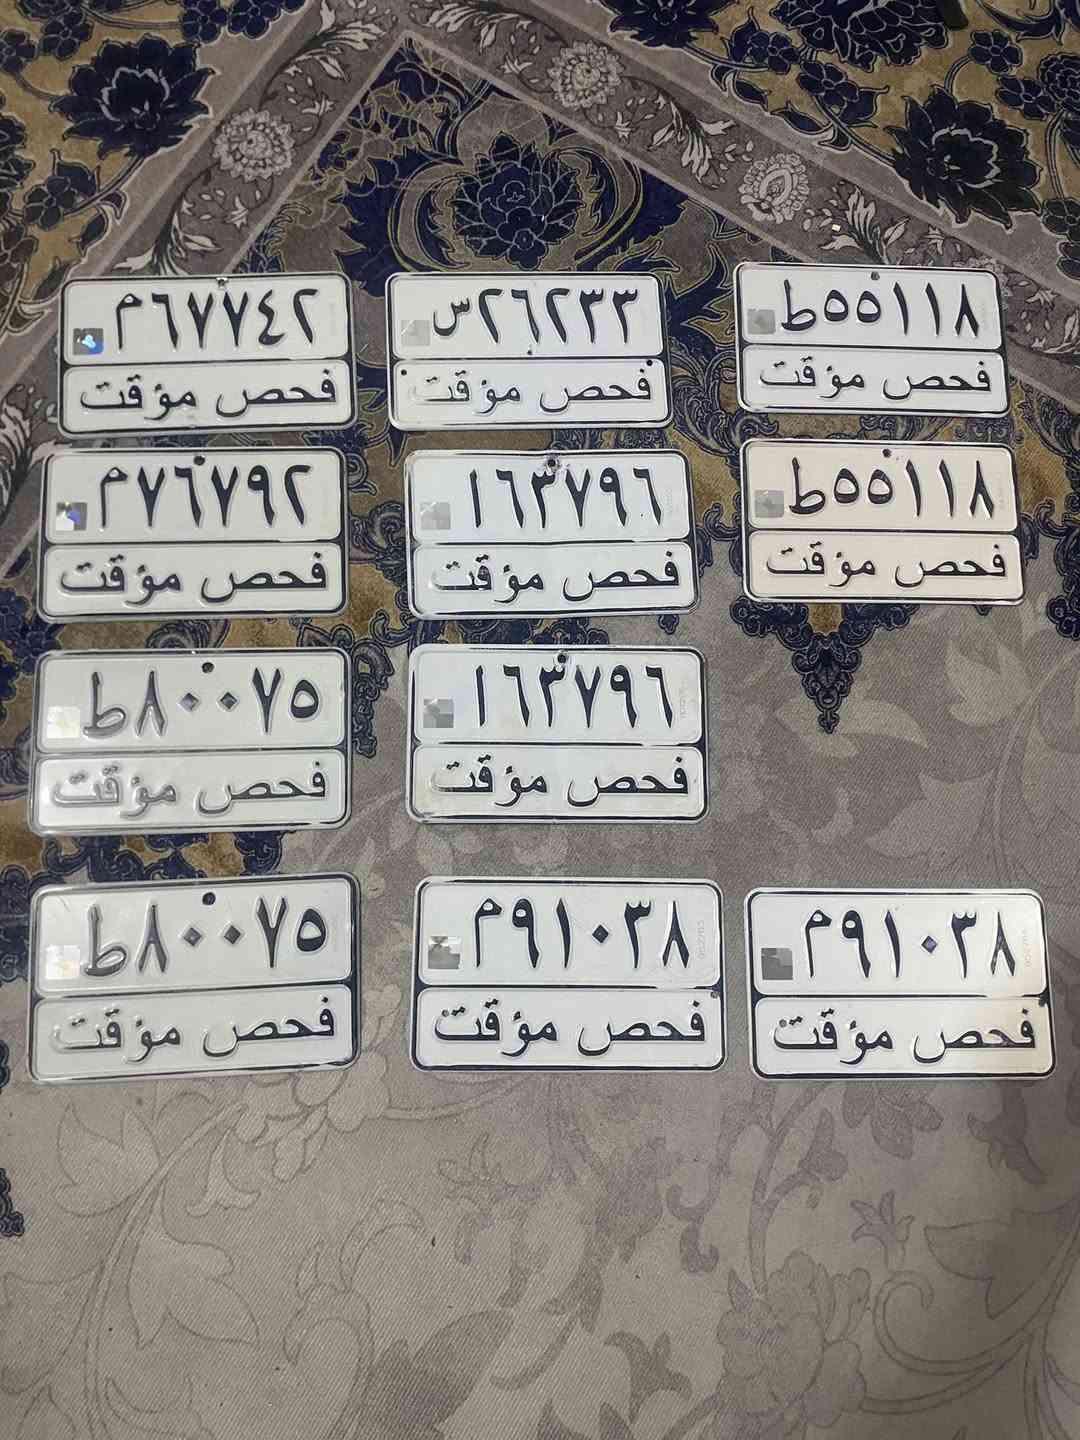 م٦٧٧٤٢
فحص مؤقت
س٢٦٢٣٣
فحص مؤقت
ط٥٥١١٨
فحص مؤقت
م٧٦٧٩٢
فحص مؤقت
١٦٣٧٩٦
فحص مؤقت
ط٥٥١١٨
فحص مؤقت
ط٨٠٠٧٥
فحص مؤقت
١٦٣٧٩٦
فحص مؤقت
ط٨٠٠٧٥
فحص مؤقت
م٩١٠٣٨
فحص مؤقت
م٩١٠٣٨
فحص مؤقت